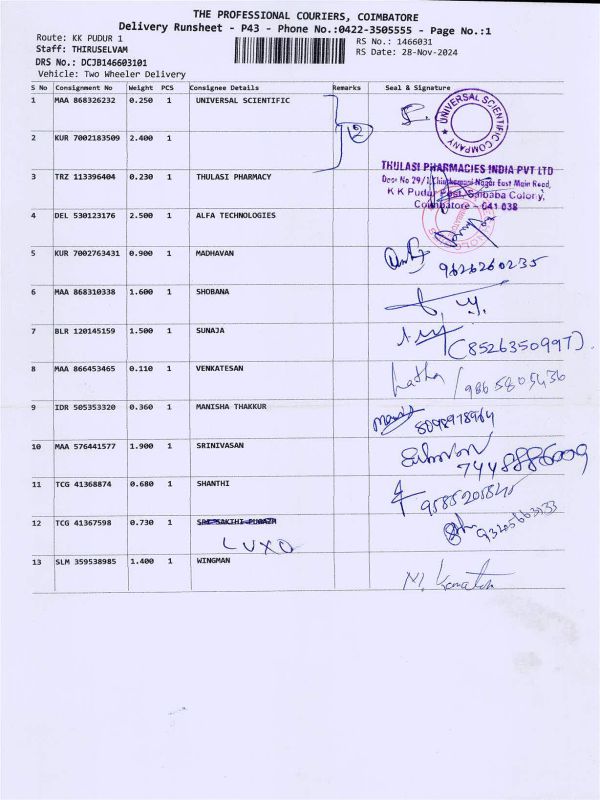 THE PROFESSIONAL COURIERS, COIMBATORE
Delivery Runsheet - P43 - Phone No.:0422-3505555 - Page No.:1
Route: KK PUDUR 1
RS No.: 1466031
Staff: THIRUSELVAM
RS Date: 28-Nov-2024
DRS No.: DCJB146603101
Vehicle: Two Wheeler Delivery
S No Consignment No Weight PCS Consignee Details Remarks Seal & Signature
1 MAA 868326232 0.250 1 UNIVERSAL SCIENTIFIC
UNIVERSAL SCIENTIFIC COMPANY
2 KUR 7002183509 2.400 1
2
3 TRZ 113396404 0.230 1 THULASI PHARMACY
THULASI PHARMACIES INDIA PVT LTD
Door No 29/1, Chinthamani Nagar East Main Road,
K K Pudur Post, Saibaba Colony,
Coimbatore - 641 038
4 DEL 530123176 2.500 1 ALFA TECHNOLOGIES
5 KUR 7002763431 0.900 1 MADHAVAN
9626260235
6 MAA 868310338 1.600 1 SHOBANA
7 BLR 120145159 1.500 1 SUNAJA
(8526350997).
8 VENKATESAN MAA 866453465 0.110 1
Latha / 9865805436
9 IDR 505355320 0.360 1 MANISHA THAKKUR
8098978964
10 MAA 576441577 1.900 1 SRINIVASAN
11 TCG 41368874 0.680 1 SHANTHI
12 TCG 41367598 0.730 1
LUXO
13 SLM 359538985 1.400 1 WINGMAN